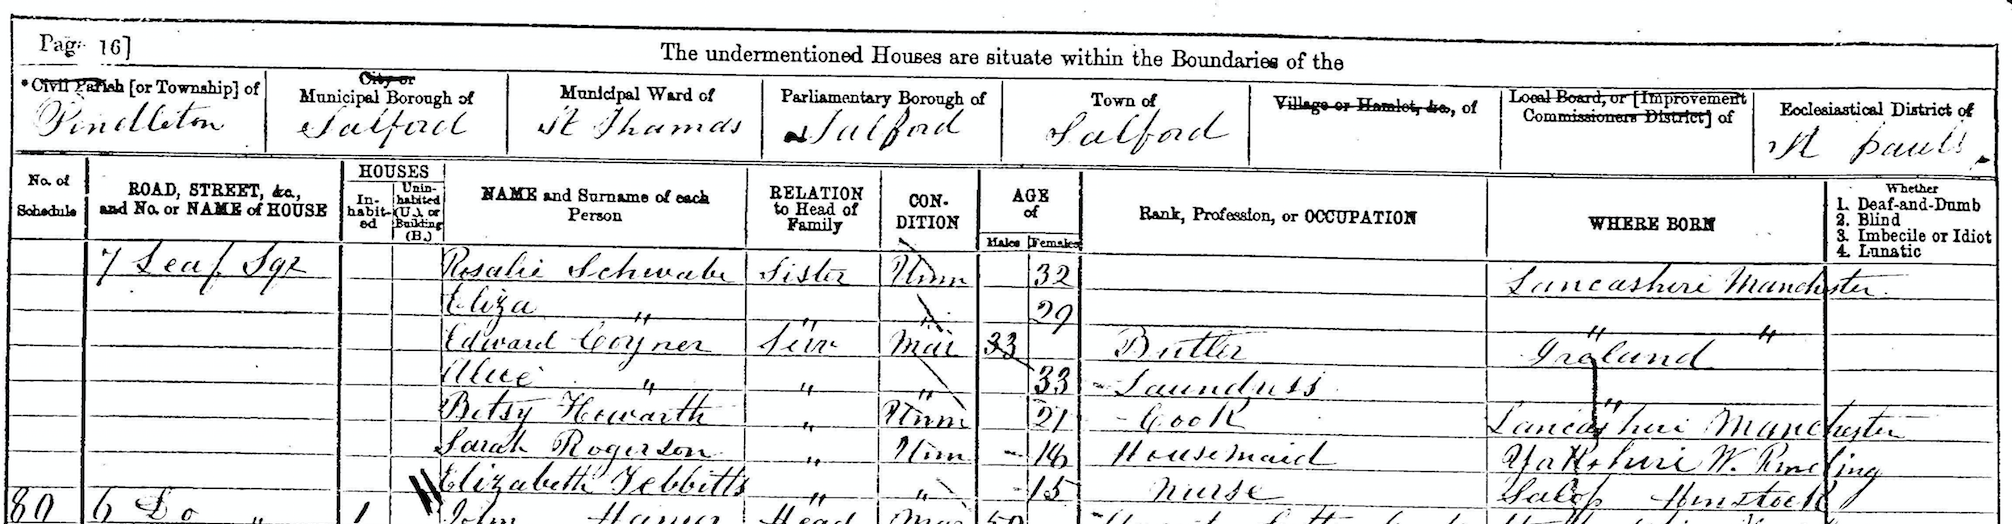 Page 16]
The undermentioned Houses are situate within the Boundaries of the
*Civil Parish [or Township] of
Pendleton
City or Municipal Borough of
Salford
Municipal Ward of
St Thomas
Parliamentary Borough of
Salford
Town of
Salford
Village or Hamlet, &c., of
Local Board, or [Improvement Commissioners District] of
Ecclesiastical District of
St Pauls
No. of Schedule
ROAD, STREET, &c., and No. or NAME of HOUSE
HOUSES
In-habit-ed
Unin-habited (U.), or Building (B.)
NAME and Surname of each Person
RELATION to Head of Family
CON-DITION
AGE of
Males Females
Rank, Profession, or OCCUPATION
WHERE BORN
Whether
1. Deaf-and-Dumb
2. Blind
3. Imbecile or Idiot
4. Lunatic
7 Leaf Sqr Rosalie Schwabe Sister Unm 32 Lancashire Manchester
Eliza " " " 29 " "
Edward Coyner Serv Mar 33 Butler Ireland
Alice " " " 33 Laundress "
Betsy Howarth " Unm 21 Cook Lancashire Manchester
Sarah Rogerson " Unm 18 Housemaid Yorkshire W.
Elizabeth Tebbitts " " 15 Nurse Salop Hinstock
80 6 Do " 1 John Head Mar 50